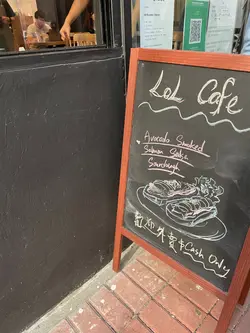 LOL Cafe
Avocado Smoked
Salmon Salsa
Sourdough
歡迎外賣 $Cash Only